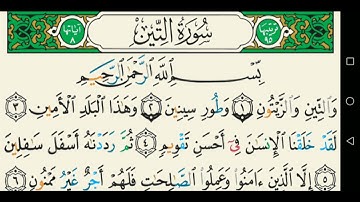 ترتيبها ٩٥
سُورَةُ التِّينِ
آياتها ٨
بِسْمِ اللَّهِ الرَّحْمَٰنِ الرَّحِيمِ
وَالتِّينِ وَالزَّيْتُونِ ١ وَطُورِ سِينِينَ ٢ وَهَٰذَا الْبَلَدِ الْأَمِينِ ٣
لَقَدْ خَلَقْنَا الْإِنسَٰنَ فِي أَحْسَنِ تَقْوِيمٍ ٤ ثُمَّ رَدَدْنَٰهُ أَسْفَلَ سَٰفِلِينَ
٥ إِلَّا الَّذِينَ ءَامَنُوا وَعَمِلُوا الصَّٰلِحَٰتِ فَلَهُمْ أَجْرٌ غَيْرُ مَمْنُونٍ ٦